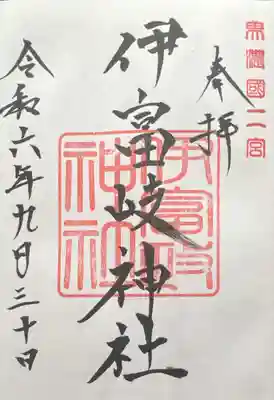 美濃國二宮
奉拝
伊富岐神社
伊富岐神社
令和六年九月三十日